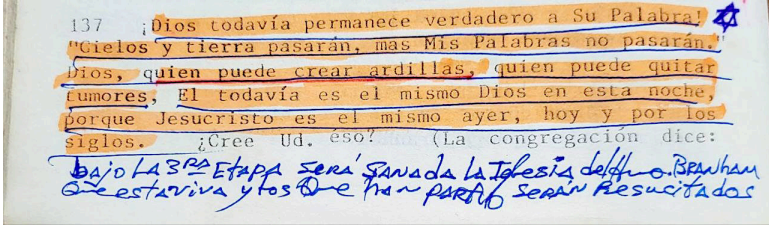 137 ¡Dios todavía permanece verdadero a Su Palabra!
"Cielos y tierra pasarán, mas Mis Palabras no pasarán."
Dios, quien puede crear ardillas, quien puede quitar
tumores, El todavía es el mismo Dios en esta noche,
porque Jesucristo es el mismo ayer, hoy y por los
siglos. ¿Cree Ud. éso? (La congregación dice:
bajo LA 3RA Etapa será sanada la Iglesia del Hno. BRANHAM
Que esta viva y los Que han partido serán Resucitados